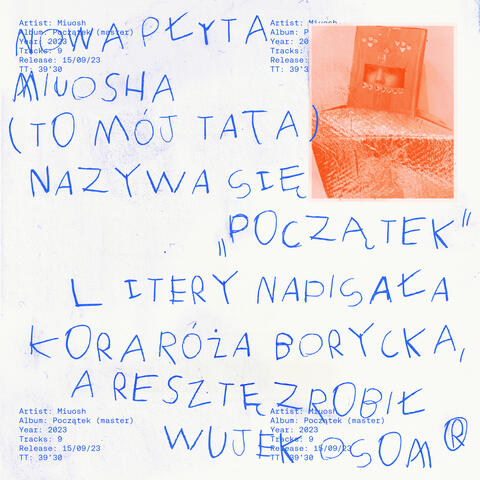 Artist: Miuosh
Album: Początek (master)
Year: 2023
Tracks: 9
Release: 15/09/23
TT: 39'30
Artist: Miuosh
Album: P
Year: 20
Tracks: 9
Release: 15/09/23
TT: 39'30
NOWA PŁYTA
MIUOSHA
(TO MÓJ TATA)
NAZYWA SIĘ
„POCZĄTEK"
LITERY NAPISAŁA
KORA RÓŻA BORYCKA,
A RESZTĘ ZROBIŁ
WUJEK OSOM®
Artist: Miuosh
Album: Początek (master)
Year: 2023
Tracks: 9
Release: 15/09/23
TT: 39'30
Artist: Miuosh
Album: Początek (master)
Year: 2023
Tracks: 9
Release: 15/09/23
TT: 39'30